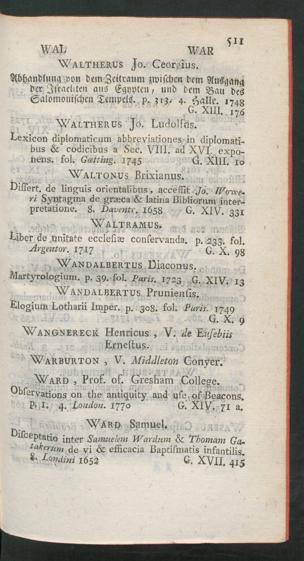 511
WAL WAR
WALTHERUS Jo. Georgius.
Abhandlung von dem Zeitraum zwischen dem Ausgang
der Israeliten aus Egypten, und dem Bau des
Salomonischen Tempels. p. 313. 4. Halle. 1748
G. XIII. 176
WALTHERUS Jo. Ludolfus.
Lexicon diplomaticum abbreviationes in diplomati-
bus & codicibus a Sec. VIII. ad XVI. expo-
nens. fol. Gotting. 1745 G. XIII. 10
WALTONUS Brixianus.
Dissert. de linguis orientalibus, accessit Jo. Wowe-
ri Syntagma de græca & latina Bibliorum inter-
pretatione. 8. Daventr. 1658 G. XIV. 331
WALTRAMUS.
Liber de unitate ecclesiæ conservanda. p. 233. fol.
Argentor. 1717 G. X. 98
WANDALBERTUS Diaconus.
Martyrologium. p. 39. fol. Paris. 1723 G. XIV. 13
WANDALBERTUS Pruniensis.
Elogium Lotharii Imper. p. 308. fol. Paris. 1749
G. X. 9
WANGNERECK Henricus, V. de Eusebiis
Ernestus.
WARBURTON, V. Middleton Conyer.
WARD, Prof. of. Gresham College.
Observations on the antiquity and use of Beacons.
p. 1. 4. London. 1770 G. XIV. 71 a.
WARD Samuel.
Disceptatio inter Samuelem Wardum & Thomam Ga-
takerum de vi & efficacia Baptismatis infantilis.
8. Londini 1652 G. XVII. 415